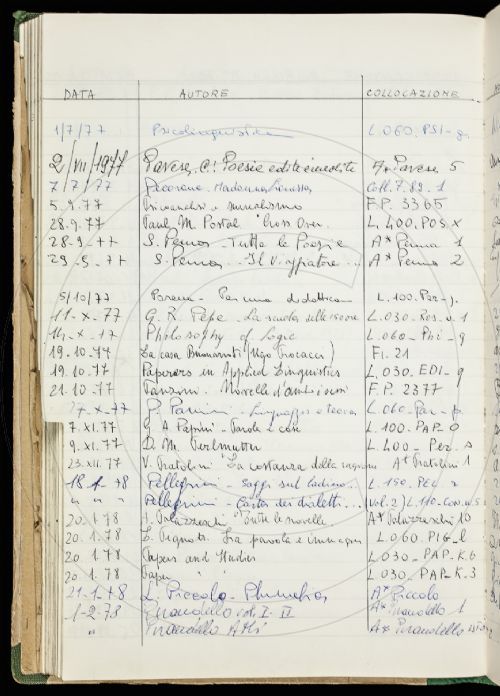 DATA AUTORE COLLOCAZIONE
1/7/77 Psicolinguistica L.060. PSI-g.
2/VII/1977 Pavese, C.: Poesie edite e inedite A* Pavese 5
7/7/77 Pecorone. Madonna Coll. 7. 89. 1
5.9.77 Psicoanalisi e F.P. 3365
28.9.77 Paul M. Postal Cross Over L. 400. POS x
28-9-77 S. Penna - Tutte le Poesie A* Penna 1
29-9-77 S. Penna - Il Viaggiatore... A* Penna 2
5/10/77 - Per una didattica L. 100. Per-
11-X-77 G. R. Pepe - La scuola delle L. 030.
14-X-77 Philosophy of Logic L. 060 - Phi - g
19.10.77 La casa Buonarroti (Ugo Procacci) Fi. 21
19.10.77 Paperors in Applied Linguistics L. 030. EDI - g
21.10.77 Novelle d'ambo i sessi F.P. 2377
27-X-77 - Linguaggio e teoria L. 060-
7.XI.77 G. A. Papini - Parole e cose L. 100. PAP-O
9.XI.77 D. M. Perlmutter L. 400 - Per.
23.XII.77 V. Pratolini La costanza della ragione A* Pratolini 1
18.1.78 Pellegrini - Saggi sul ladino L. 150. PEL
" " " Pellegrini - Carta dei dialetti... (vol. 2) L. 110-Con.
20.1.78 Palazzeschi Tutte le novelle A* Palazzeschi 10
20.1.78 Pignotti. Fra parola e immagine L 060. PIG-l
20 1.78 Papers and Studies L 030. PAP-K.6
20 1.78 Papers " " L 030. PAP-K.3
21-1-78 L. Piccolo - Plumelia A* Piccolo
1-2-78 Pirandello vol. I-II A* Pirandello 1
" Pirandello Atti A* Pirandello